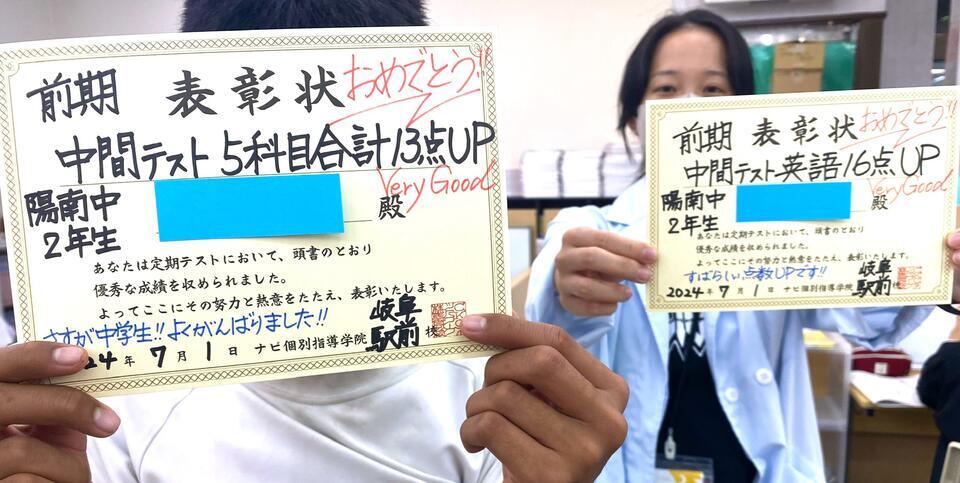 前期 表彰状 おめでとう!!
中間テスト 5科目合計13点UP
Very Good
陽南中
2年生
殿
あなたは定期テストにおいて、頭書のとおり
優秀な成績を収められました。
よってここにその努力と熱意をたたえ、表彰いたします。
さすが中学生!! よくがんばりました!!
24年 7月 1日 ナビ個別指導学院 岐阜駅前校
前期 表彰状 おめでとう!!
中間テスト英語16点UP
Very Good
陽南中
2年生
殿
あなたは定期テストにおいて、頭書のとおり
優秀な成績を収められました。
よってここにその努力と熱意をたたえ、表彰いたします。
すばらしい点数UPです!!
2024年 7月 1日 ナビ個別指導学院 岐阜駅前校